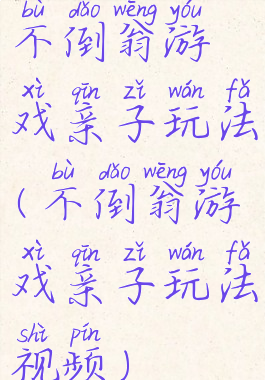 bù dǎo wēng yóu
不倒翁游
xì qīn zǐ wán fǎ
戏亲子玩法
bù dǎo wēng yóu
(不倒翁游
xì qīn zǐ wán fǎ
戏亲子玩法
shì pín
视频)